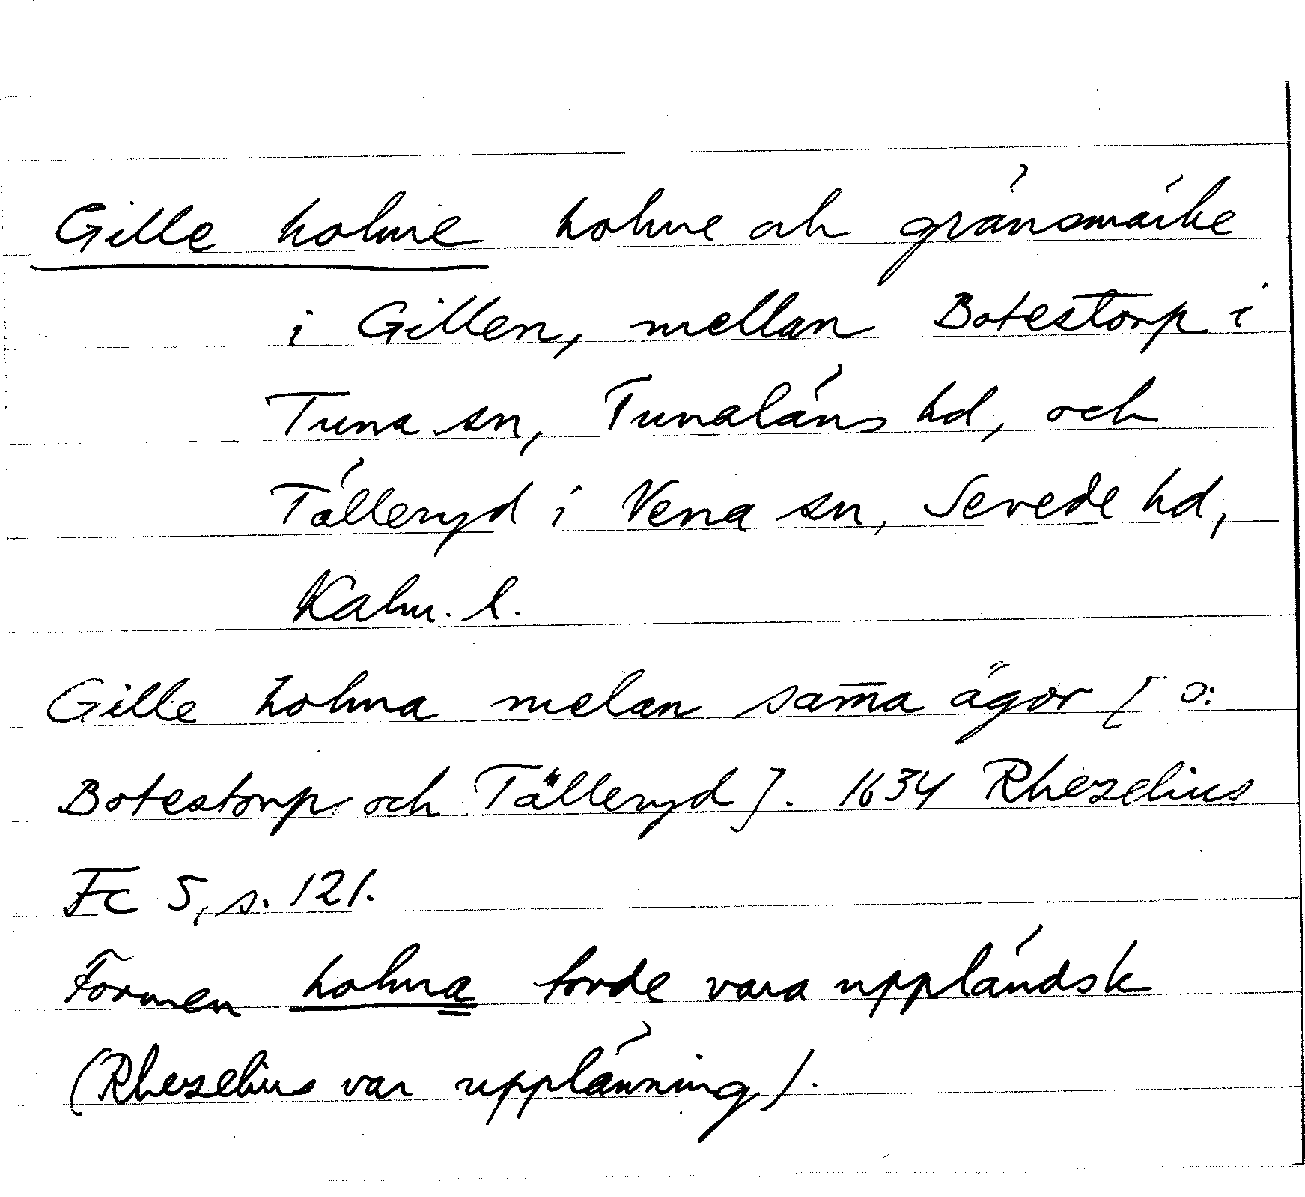 Gille holme holme och gränsmärke
i Gillen, mellan Botestorp i
Tuna sn, Tunaläns hd, och
Tälleryd i Vena sn, Sevede hd,
Kalm. l.
Gille holma melan sam̄a ägor [ ɔ:
Botestorp och Tälleryd ]. 1634 Rhezelius
Fc 5, s. 121.
Formen holma torde vara uppländsk
(Rhezelius var upplänning).